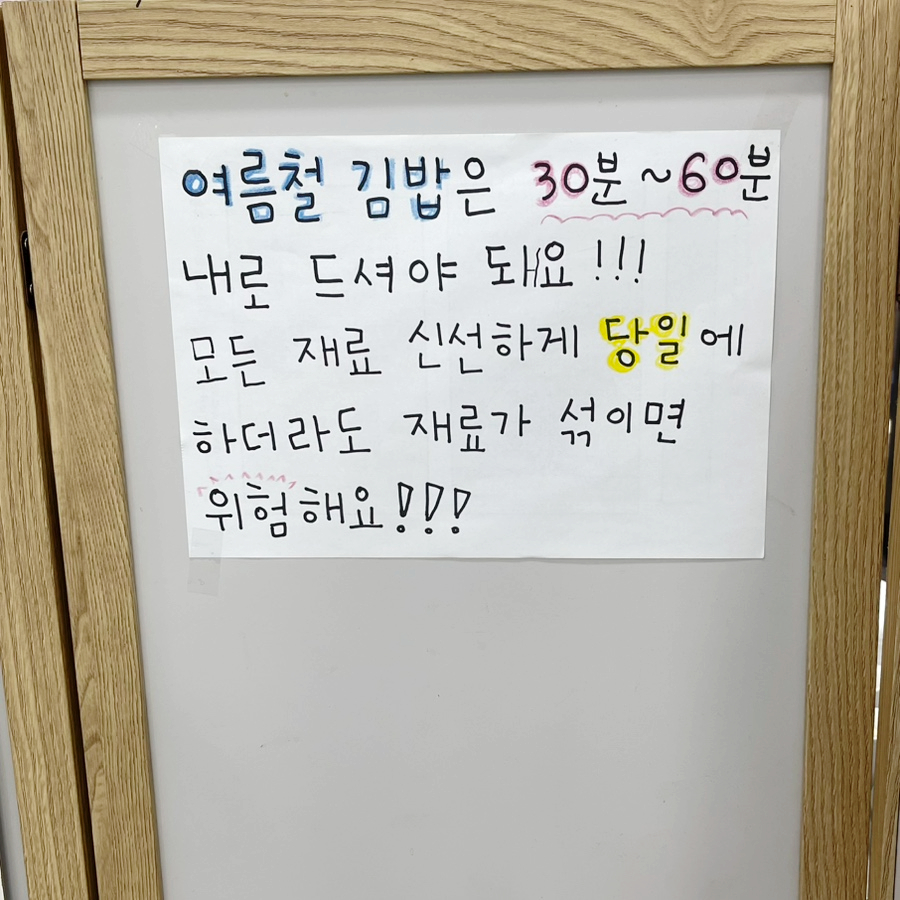 여름철 김밥은 30분~60분
내로 드셔야 돼요!!!
모든 재료 신선하게 당일에
하더라도 재료가 섞이면
위험해요!!!